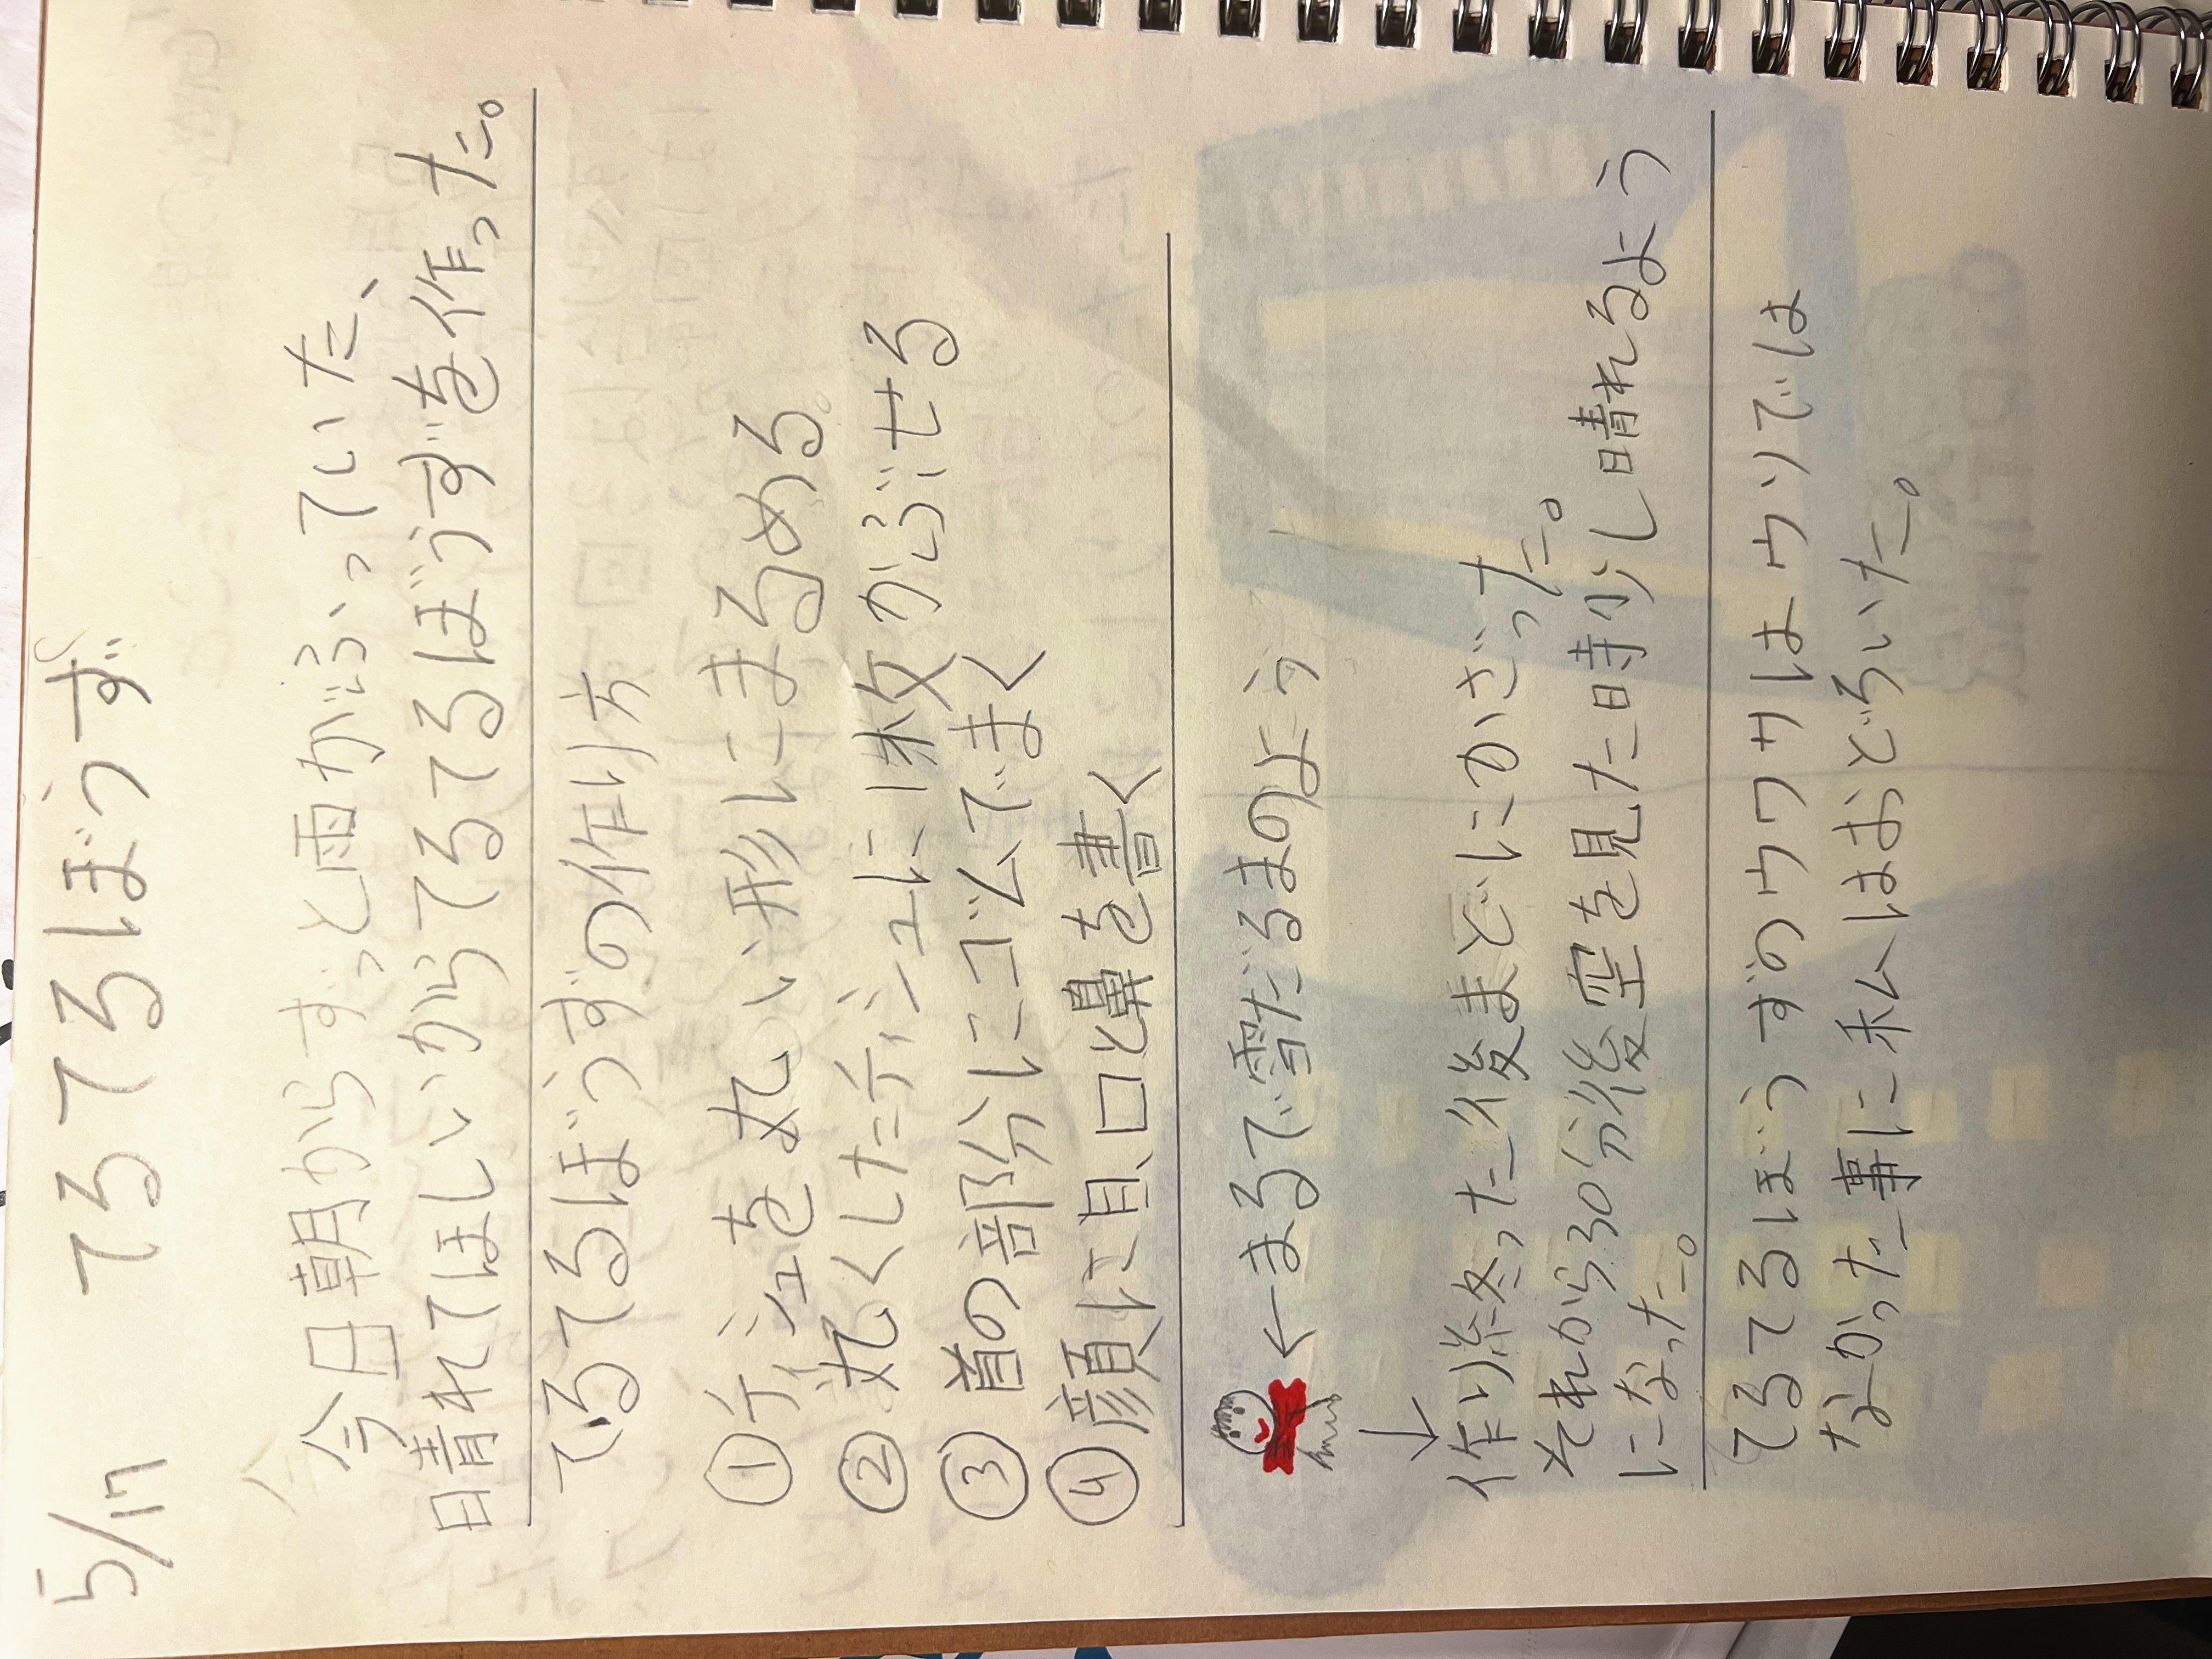 5/17 てるてるぼうず
今日朝からずっと雨がふっていた、
晴れてほしいからてるてるぼうずを作った。
てるてるぼうずの作り方
①ティシュを丸い形にまるめる。
②丸くしたティシュに1枚かぶせる
③首の部分にゴムでまく
④顔に目、口と鼻を書く
←まるで雪だるまのよう
↓
作り終わった後まどにかざった。
それから30分後空を見た時少し晴れるよう
になった。
てるてるぼうずのウワサはウソでは
なかった事に私はおどろいた。